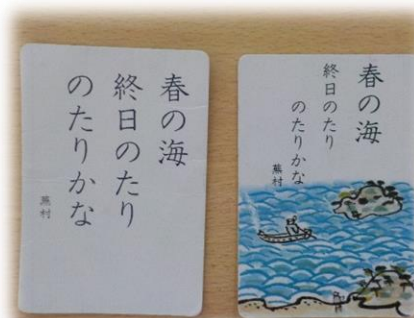 春の海
終日のたり
のたりかな
蕪村
春の海
終日のたり
のたりかな
蕪村